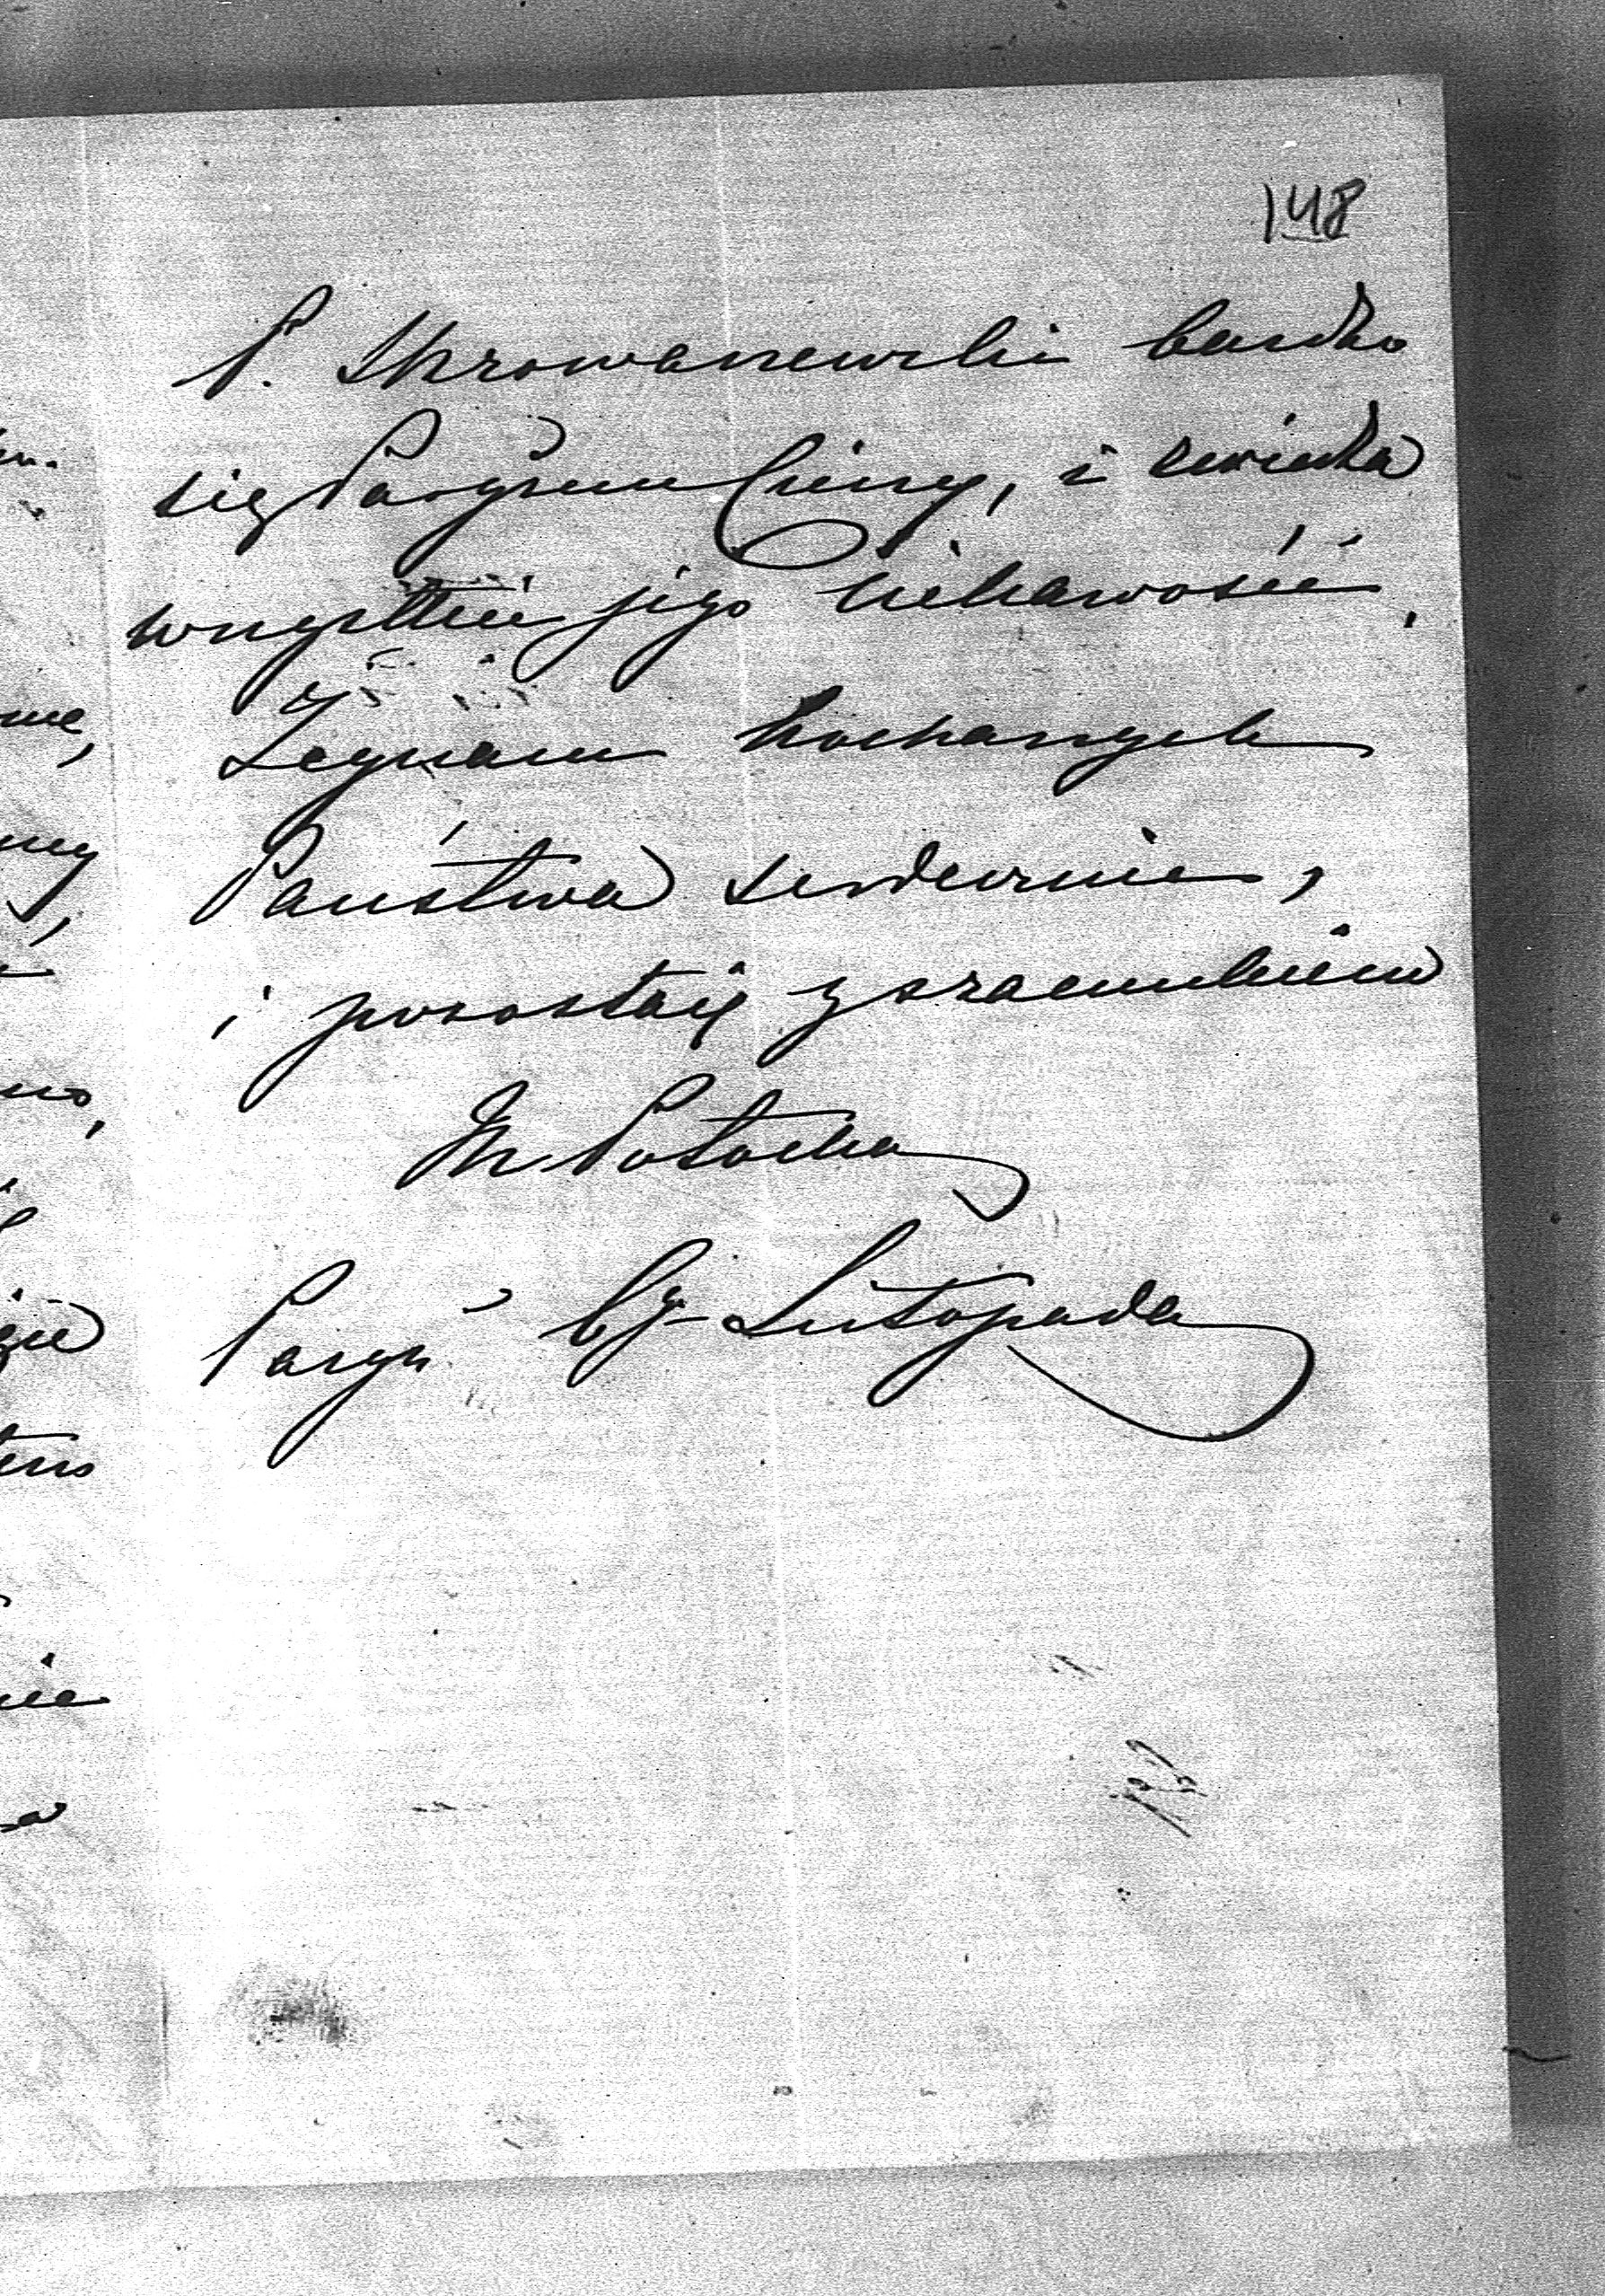 148
P. bardzo
się Paryżem cieszy, i zwiedza
wszystkie jego ciekawości.
Żegnam kochanych
Państwa serdecznie,
i pozostaję z szacunkiem
Potocka
Paryż Listopada